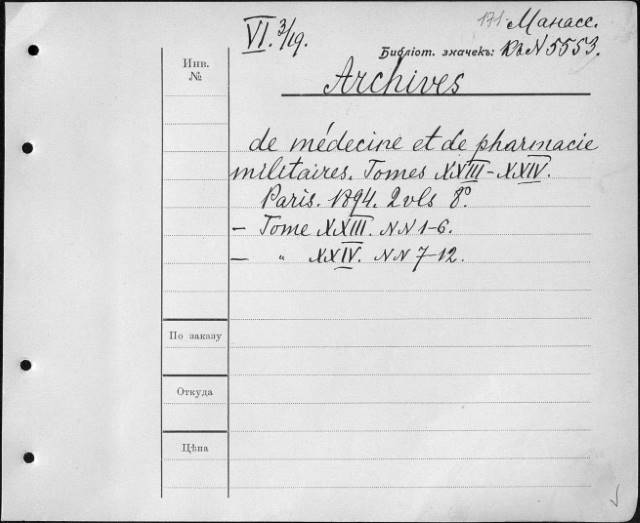 VI. 3/19.
171 Манасс.
Библіот. значекъ: КвN 5553.
Инв.
№
Archives
de médecine et de pharmacie
militaires. Tomes XXIII-XXIV.
Paris. 1894. 2 vls 8º.
- Tome XXIII. NN 1-6.
- " XXIV. NN 7-12.
По заказу
Откуда
Цѣна